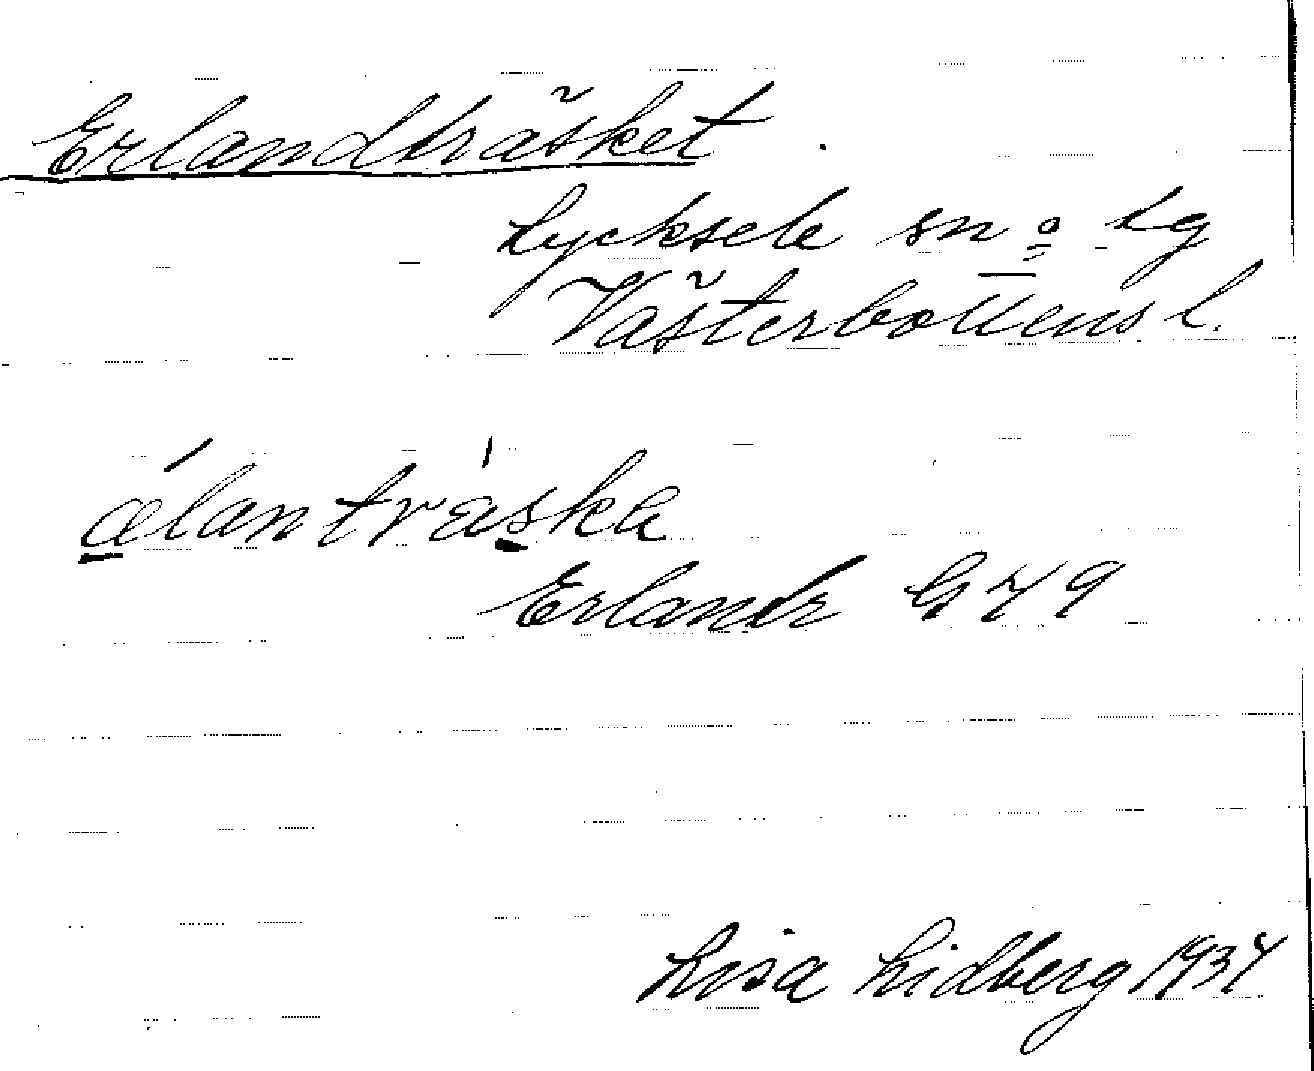 Erlandträsket
Lycksele sn o Lg
Västerbottens l.
álantràska
Erlandr G 79
Lisa Lidberg 1934